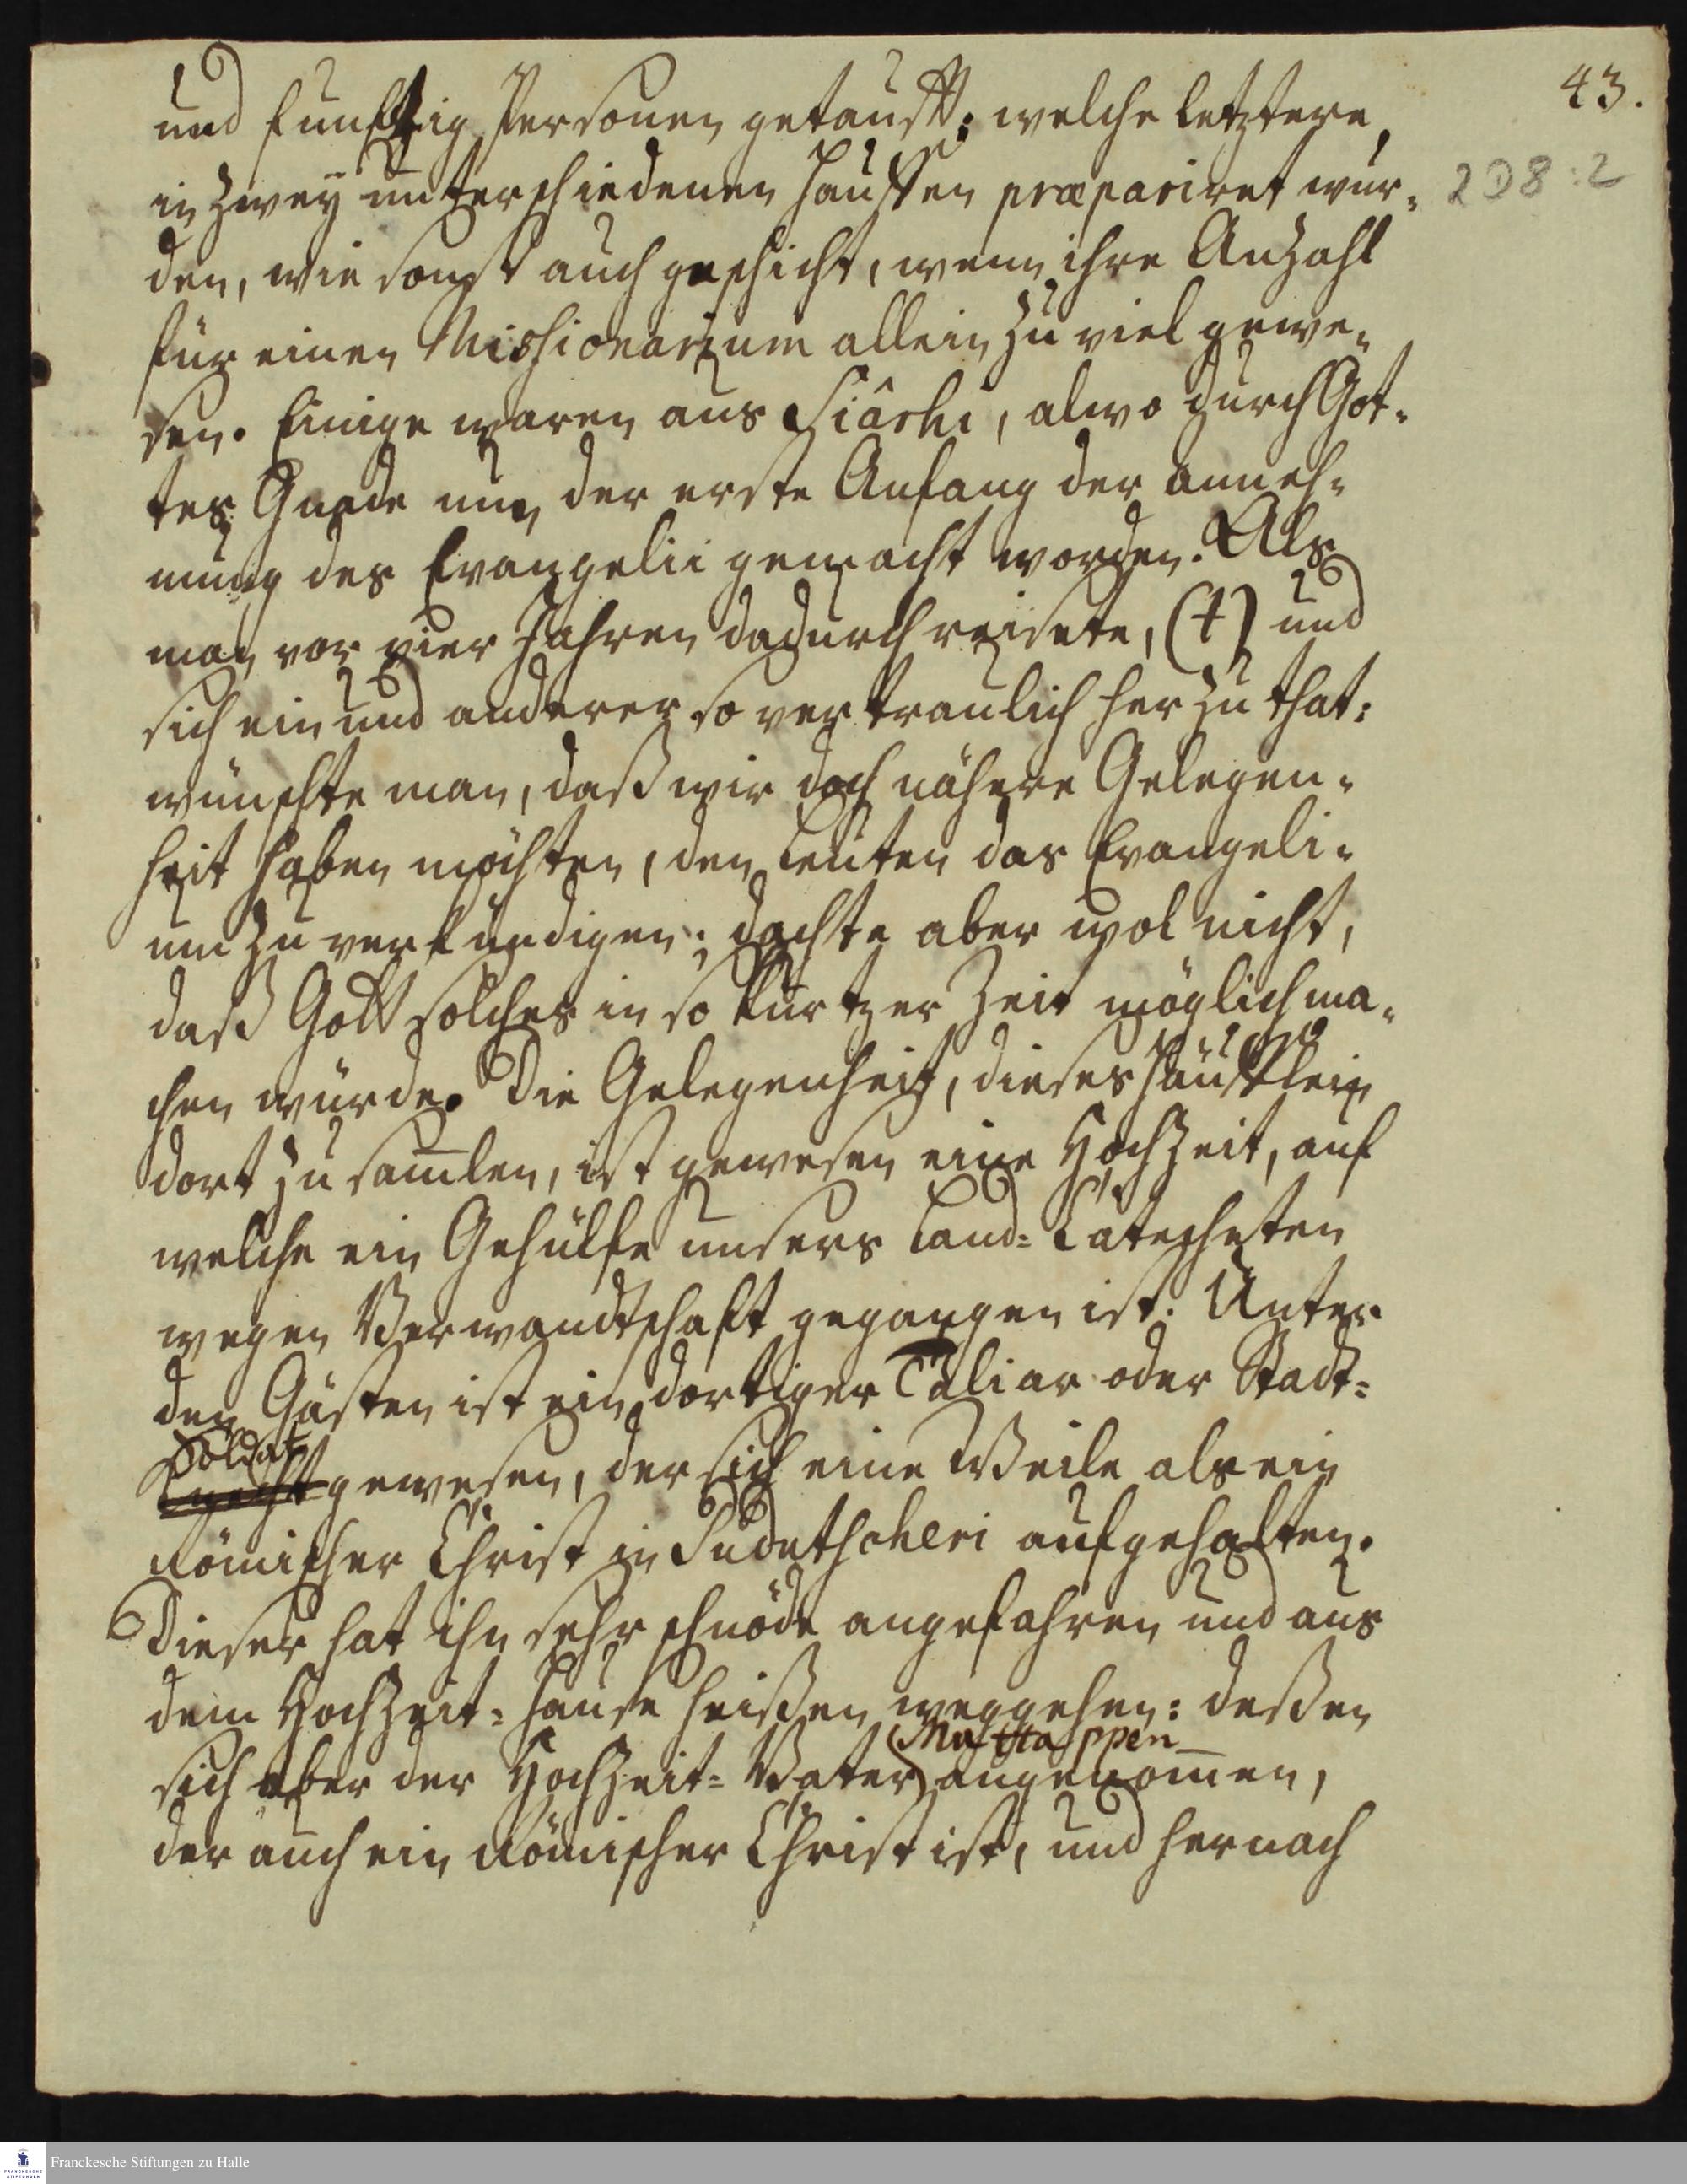 43.
und funftzig Personen getaufft; welche letztere,
in zwey unterschiedenen Hauffen præpariret wur-
208:2
den, wie sonst auch geschicht, wenn ihre Anzahl
für einen Missionarium allein zu viel gewe-
sen. Einige waren aus Siârhi, alwo durch Got-
tes Gnade nun der erste Anfang der Anneh-
mung des Evangelii gemacht worden. Als
man vor vier Jahren dadurch reisete, (†) und
sich ein und anderer so vertraulich herzu that:
wünschte man, daß wir doch nähere Gelegen-
heit haben möchten, den Leuten das Evangeli-
um zu verkündigen; dachte aber wol nicht,
daß Gott solches in so kurtzer Zeit möglich ma-
chen würde. Die Gelegenheit, dieses Häufflein
dort zu sam̄len, ist gewesen eine Hochzeit, auf
welche ein Gehülfe unsers Land-Catecheten
wegen Verwandtschaft gegangen ist. Unter
den Gästen ist ein dortiger Taliar oder Stadt-
Soldat
Knecht gewesen, der sich eine Weile als ein
Römischer Christ in Pudutscheri aufgehalten.
Dieser hat ihn sehr schnöde angefahren und aus
dem Hochzeit-Hause heißen weggehen: deßen
Muttappen
sich aber der Hochzeit-Vater angenom̄en,
der auch ein Römischer Christ ist, und hernach
Franckesche Stiftungen zu Halle